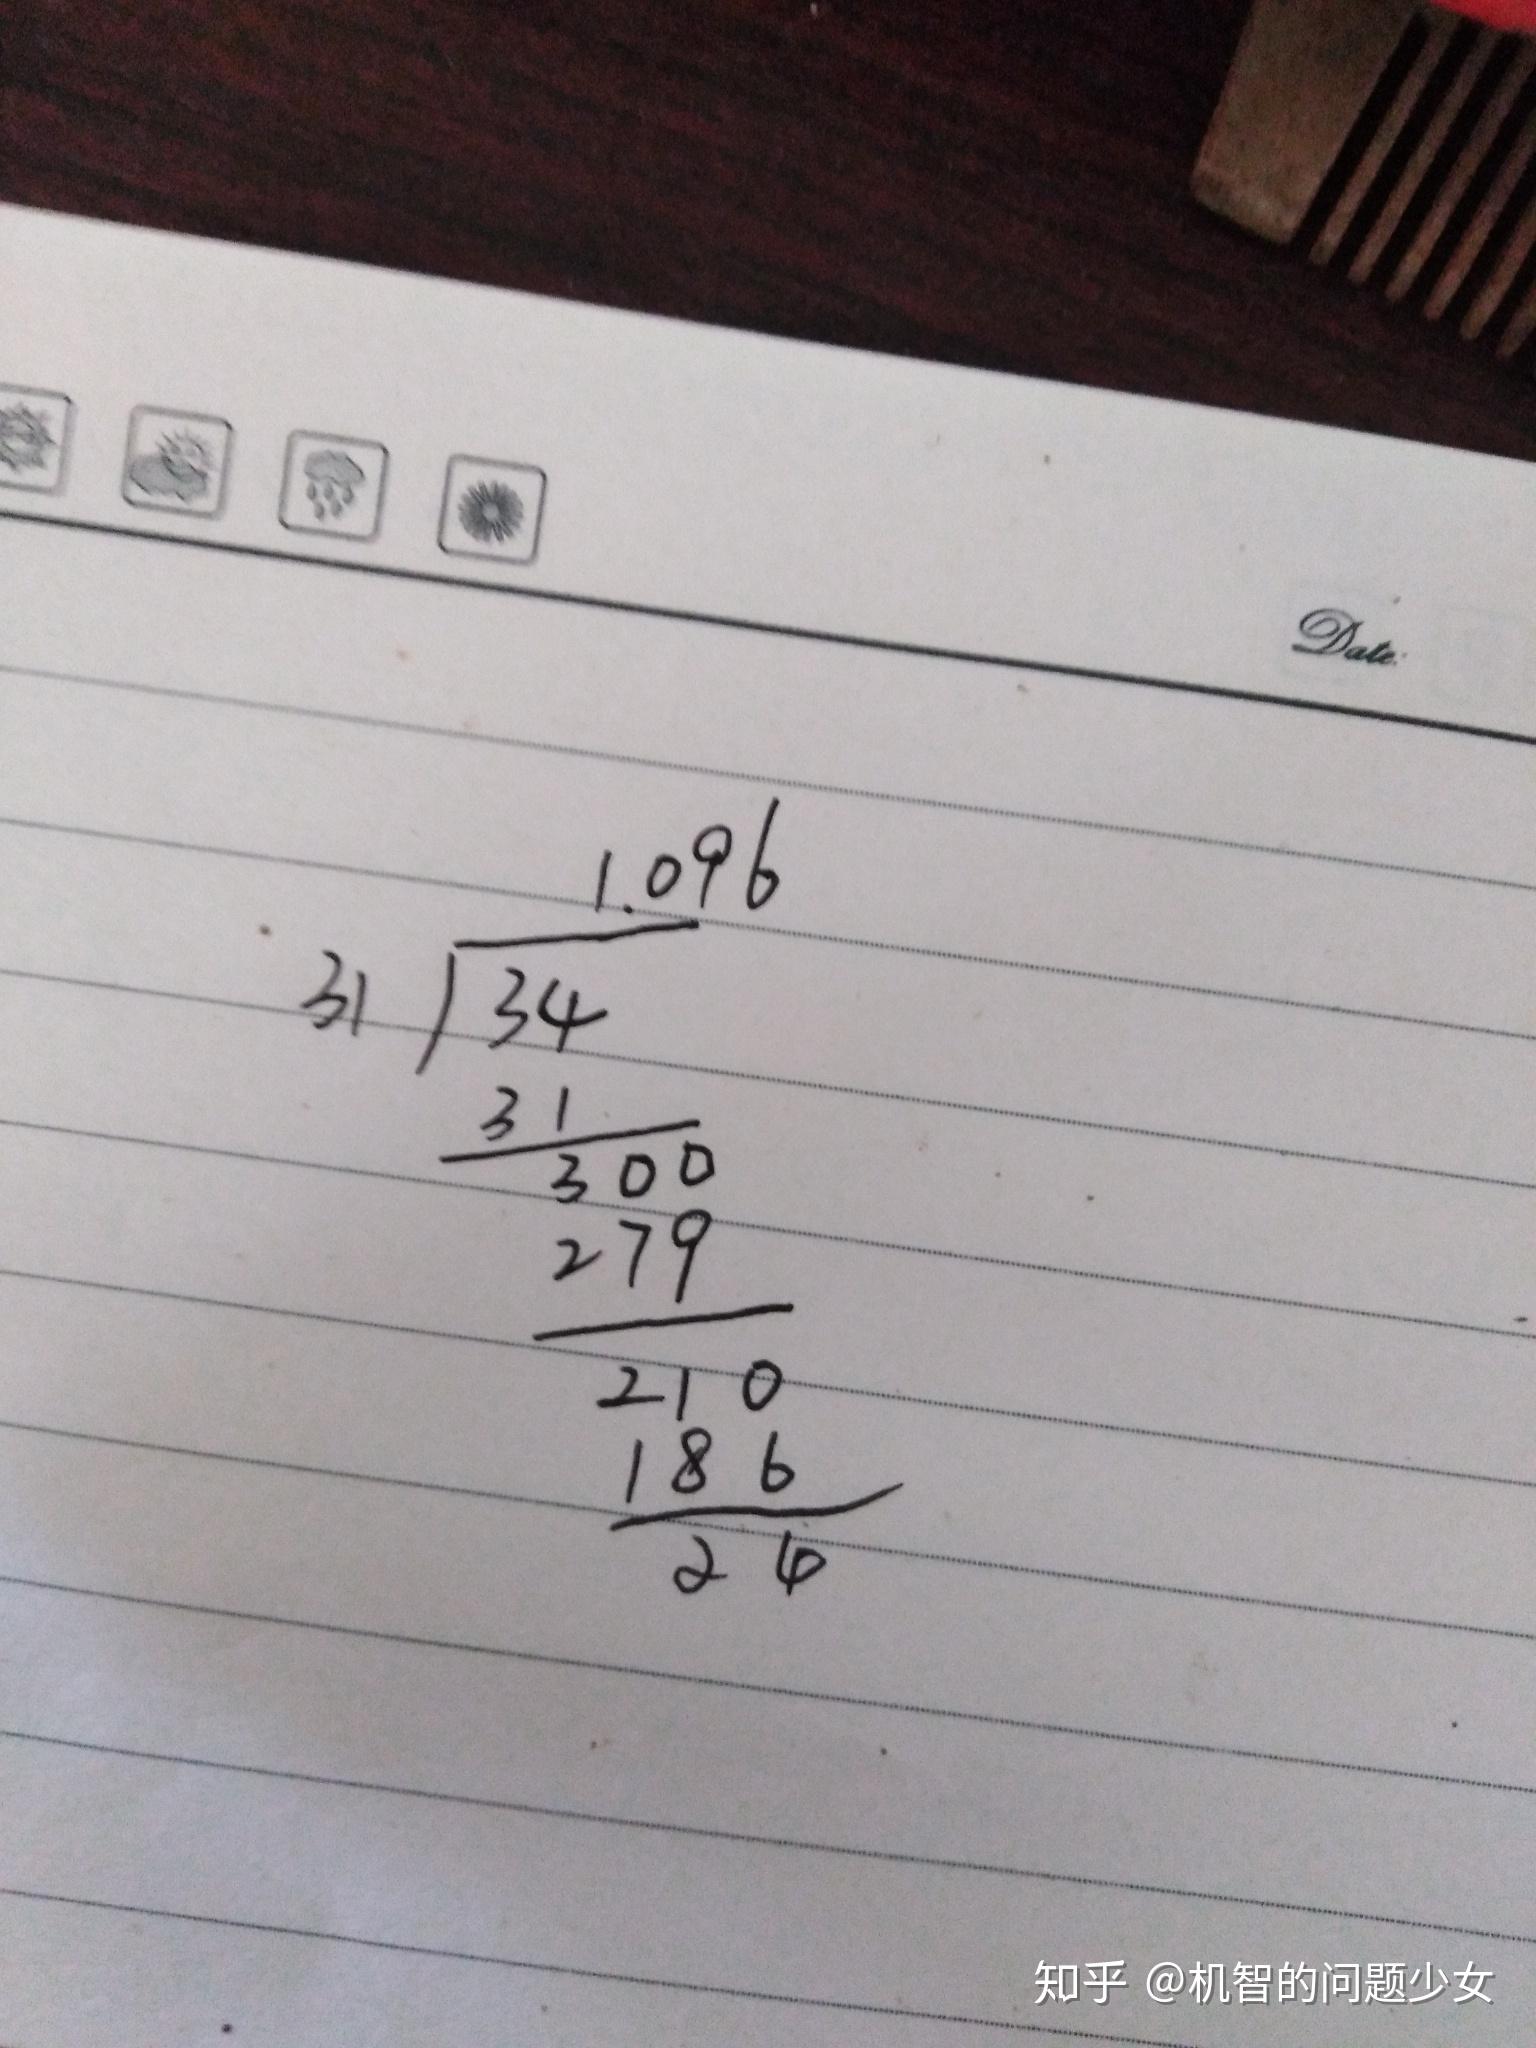 Date:
1.096
31 34
31
300
279
210
186
24
知乎 @机智的问题少女